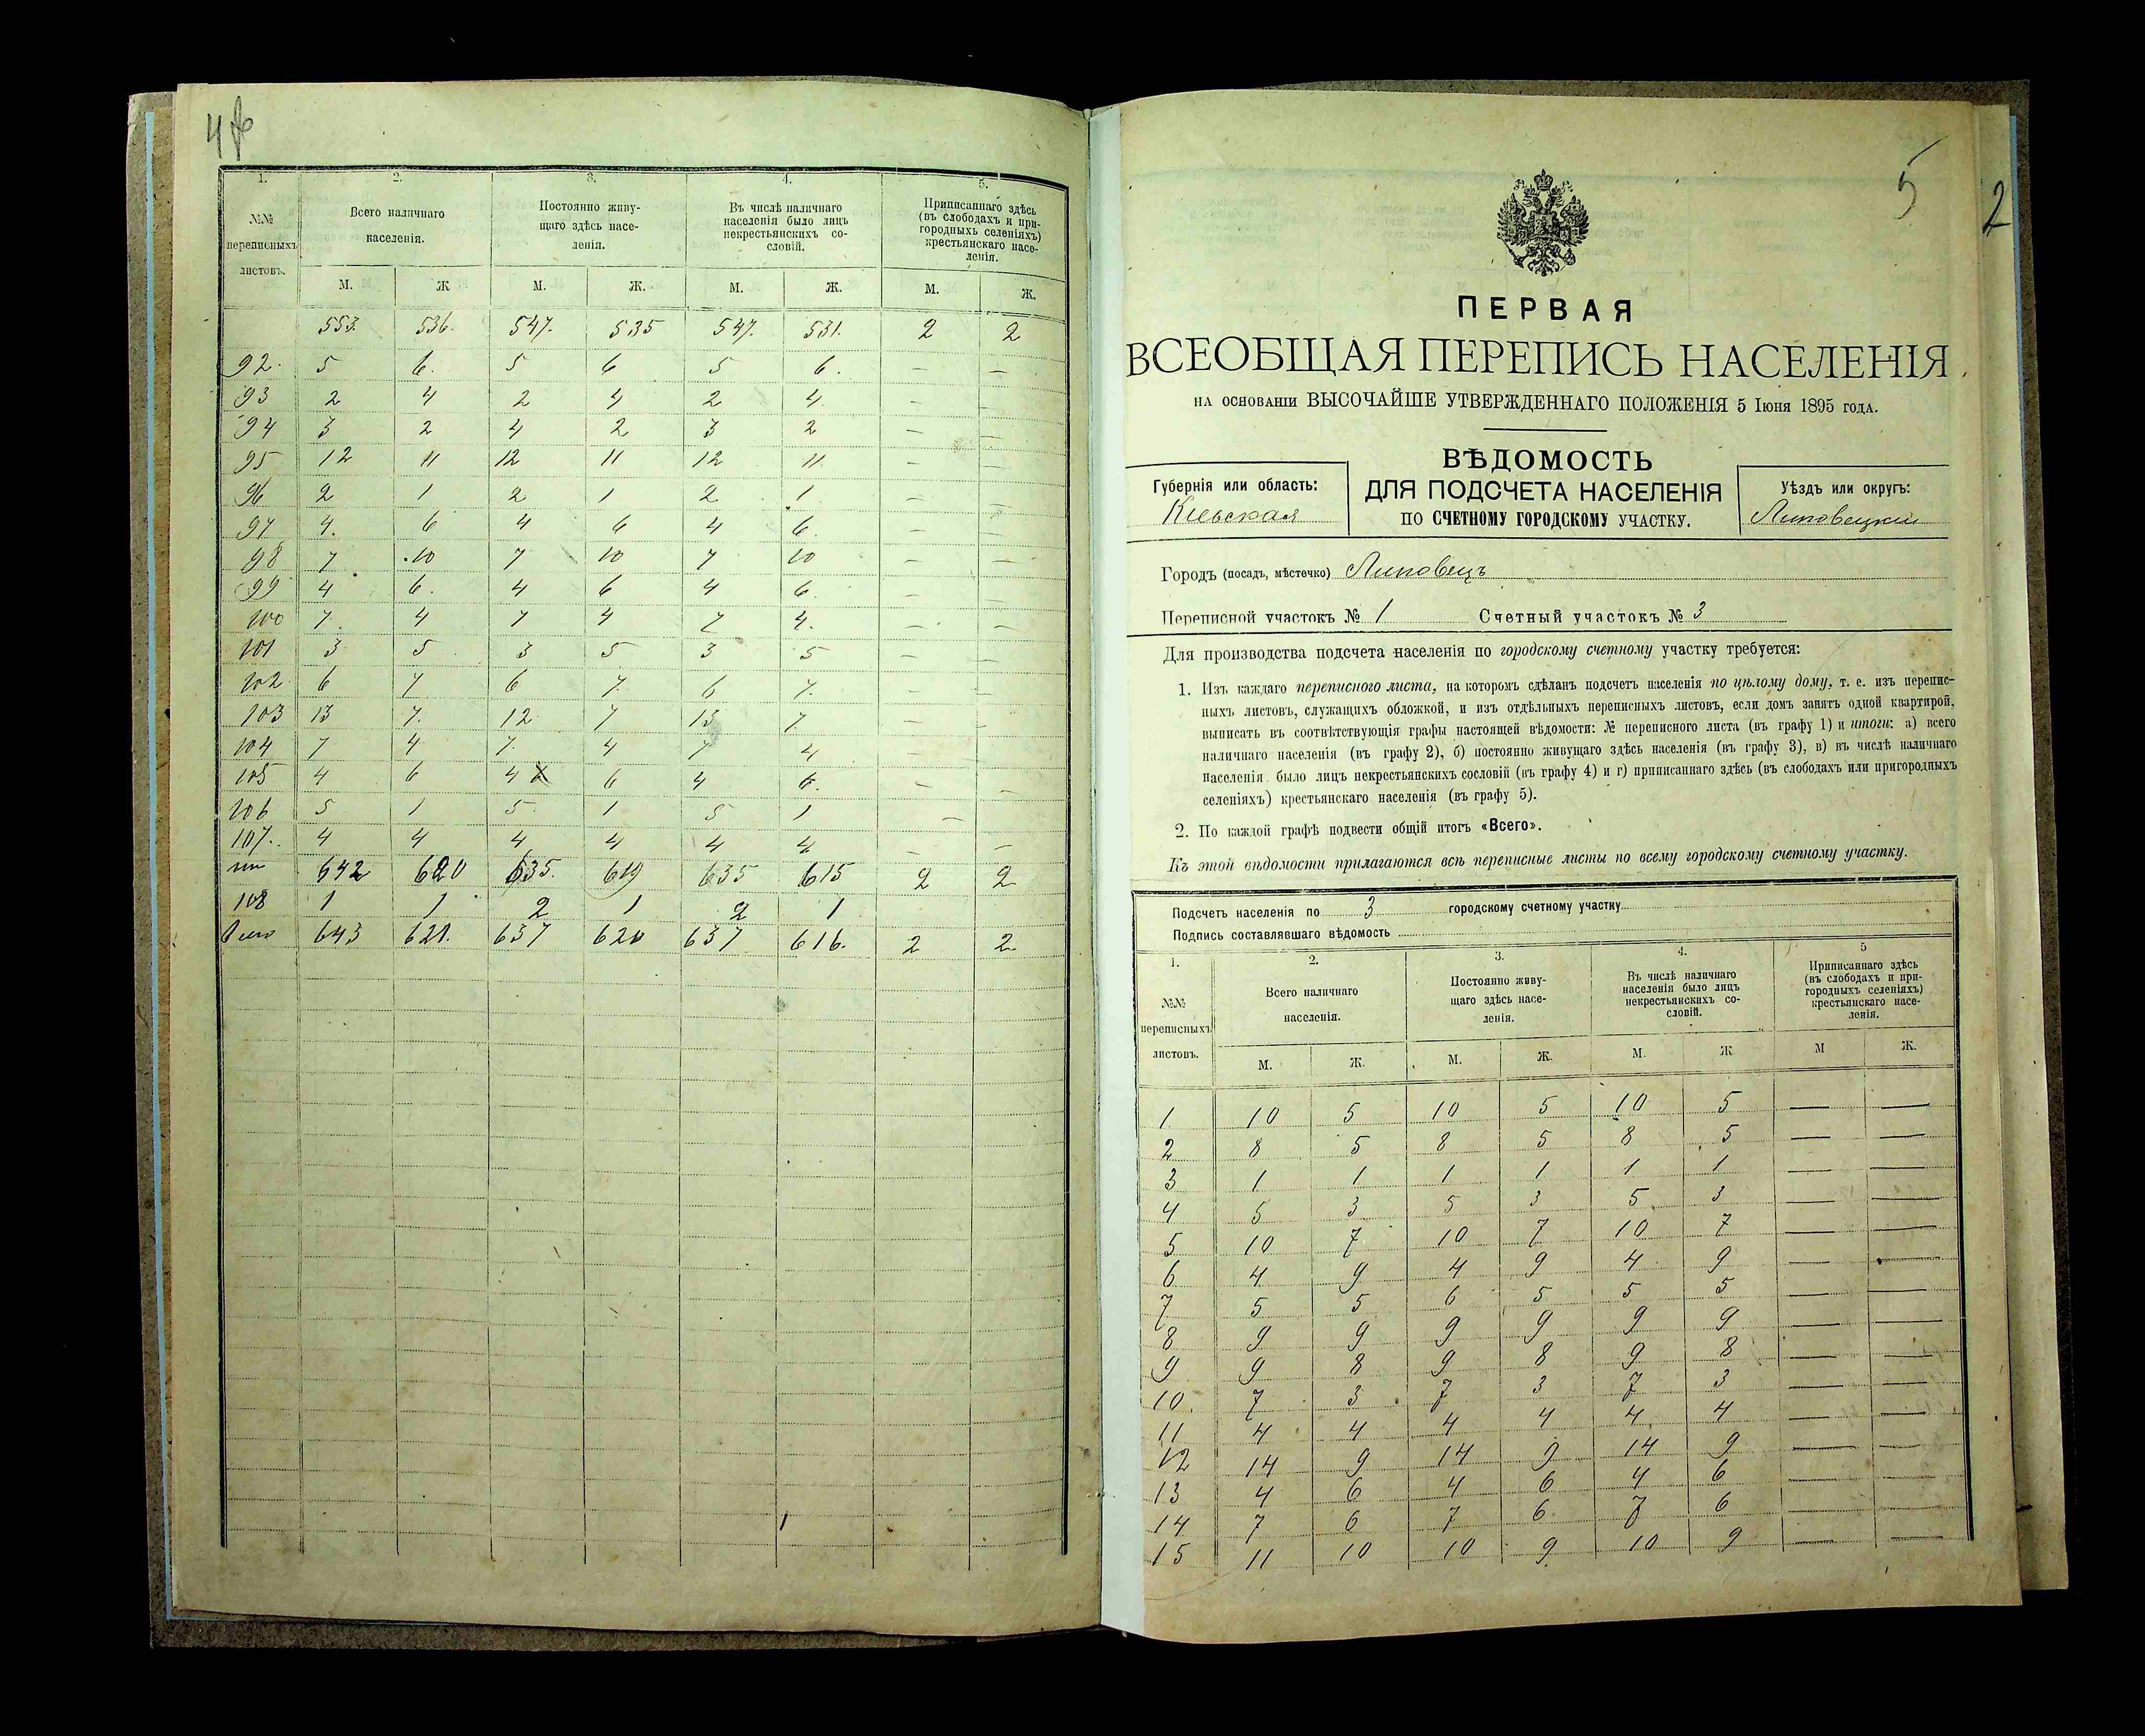 4
1. 2. 3. 4. 5.
№№ переписныхъ листовъ.
Всего наличнаго населенія.
Постоянно живущаго здѣсь насе-
ленія.
Въ числѣ наличнаго
населенія было лицъ
некрестьянскихъ со-
словій.
Приписаннаго здѣсь
(въ слободахъ и при-
городныхъ селеніяхъ)
крестьянскаго насе-
ленія.
М. Ж М. Ж. М. Ж. М. Ж.
553. 536. 547. 535 547. 531. 2 2
92. 5 6. 5 6 5 6. — —
93 2 4 2 4 2 4. — —
94 3 2 4 2 3 2 — —
95 12 11 12 11 12 11. — —
96 2 1 2 1 2. 1. — —
97 4. 6 4 6 4 6. — —
98 7 10 7 10 7 10 — —
99 4 6. 4 6 4 6. — —
100 7. 4 7 4 7 4. — —
101 3 5 3 5 3 5 — —
102 6 7 6 7. 6 7. — —
103 13 7. 12 7 13 7. — —
104 7 4 7. 4 7 4 — —
105 4 6 4 6 4 6. — —
106 5 1 5. 1 5 1 —
107. 4 4 4 4 4 4 — —
642 620 635. 619 635 615 2 2
108 1 1 2 1 2 1
Всего 643 621. 637 620 637 616. 2 2
5
2
ПЕРВАЯ
ВСЕОБЩАЯ ПЕРЕПИСЬ НАСЕЛЕНІЯ,
НА ОСНОВАНІИ ВЫСОЧАЙШЕ УТВЕРЖДЕННАГО ПОЛОЖЕНІЯ 5 ІЮНЯ 1895 ГОДА.
ВѢДОМОСТЬ
ДЛЯ ПОДСЧЕТА НАСЕЛЕНІЯ
ПО СЧЕТНОМУ ГОРОДСКОМУ УЧАСТКУ.
Губернія или область:
Кіевская
Уѣздъ или округъ:
Липовецкій
Городъ (посадъ, мѣстечко) Липовецъ
Переписной участокъ № 1 Счетный участокъ № 3
Для производства подсчета населенія по городскому счетному участку требуется:
1. Изъ каждаго переписного листа, на которомъ сдѣланъ подсчетъ населенія по цѣлому дому, т. е. изъ перепис-
ныхъ листовъ, служащихъ обложкой, и изъ отдѣльныхъ переписныхъ листовъ, если домъ занятъ одной квартирой,
выписать въ соотвѣтствующія графы настоящей вѣдомости: № переписного листа (въ графу 1) и итоги: а) всего
наличнаго населенія (въ графу 2), б) постоянно живущаго здѣсь населенія (въ графу 3), в) въ числѣ наличнаго
населенія было лицъ некрестьянскихъ сословій (въ графу 4) и г) приписаннаго здѣсь (въ слободахъ или пригородныхъ
селеніяхъ) крестьянскаго населенія (въ графу 5).
2. По каждой графѣ подвести общій итогъ «Всего».
Къ этой вѣдомости прилагаются всѣ переписные листы по всему городскому счетному участку.
Подсчетъ населенія по 3 городскому счетному участку
Подпись составлявшаго вѣдомость
1. 2. 3. 4. 5
№№ переписныхъ листовъ.
Всего наличнаго населенія.
Постоянно живу-
щаго здѣсь насе-
ленія.
Въ числѣ наличнаго
населенія было лицъ
некрестьянскихъ со-
словій.
Приписаннаго здѣсь
(въ слободахъ и при-
городныхъ селеніяхъ)
крестьянскаго насе-
ленія.
М. Ж. М. Ж. М. Ж М Ж.
1. 10 5 10 5 10 5 — —
2 8 5 8 5 8 5 — —
3 1 1 1 1 1 1 — —
4 5 3 5 3 5 3 — —
5 10 7 10 7 10 7 — —
6 4 9 4 9 4 9 — —
7 5 5 6 5 5 5 — —
8 9 9 9 9 9 9 — —
9 9 8 9 8 9 8 — —
10. 7 3 7 3 7 3 — —
11 4 4 4 4 4 4 — —
12 14 9 14 9 14 9 — —
13 4 6 4 6 4 6 — —
14 7 6 7 6 7 6 — —
15 11 10 10 9 10 9 — —